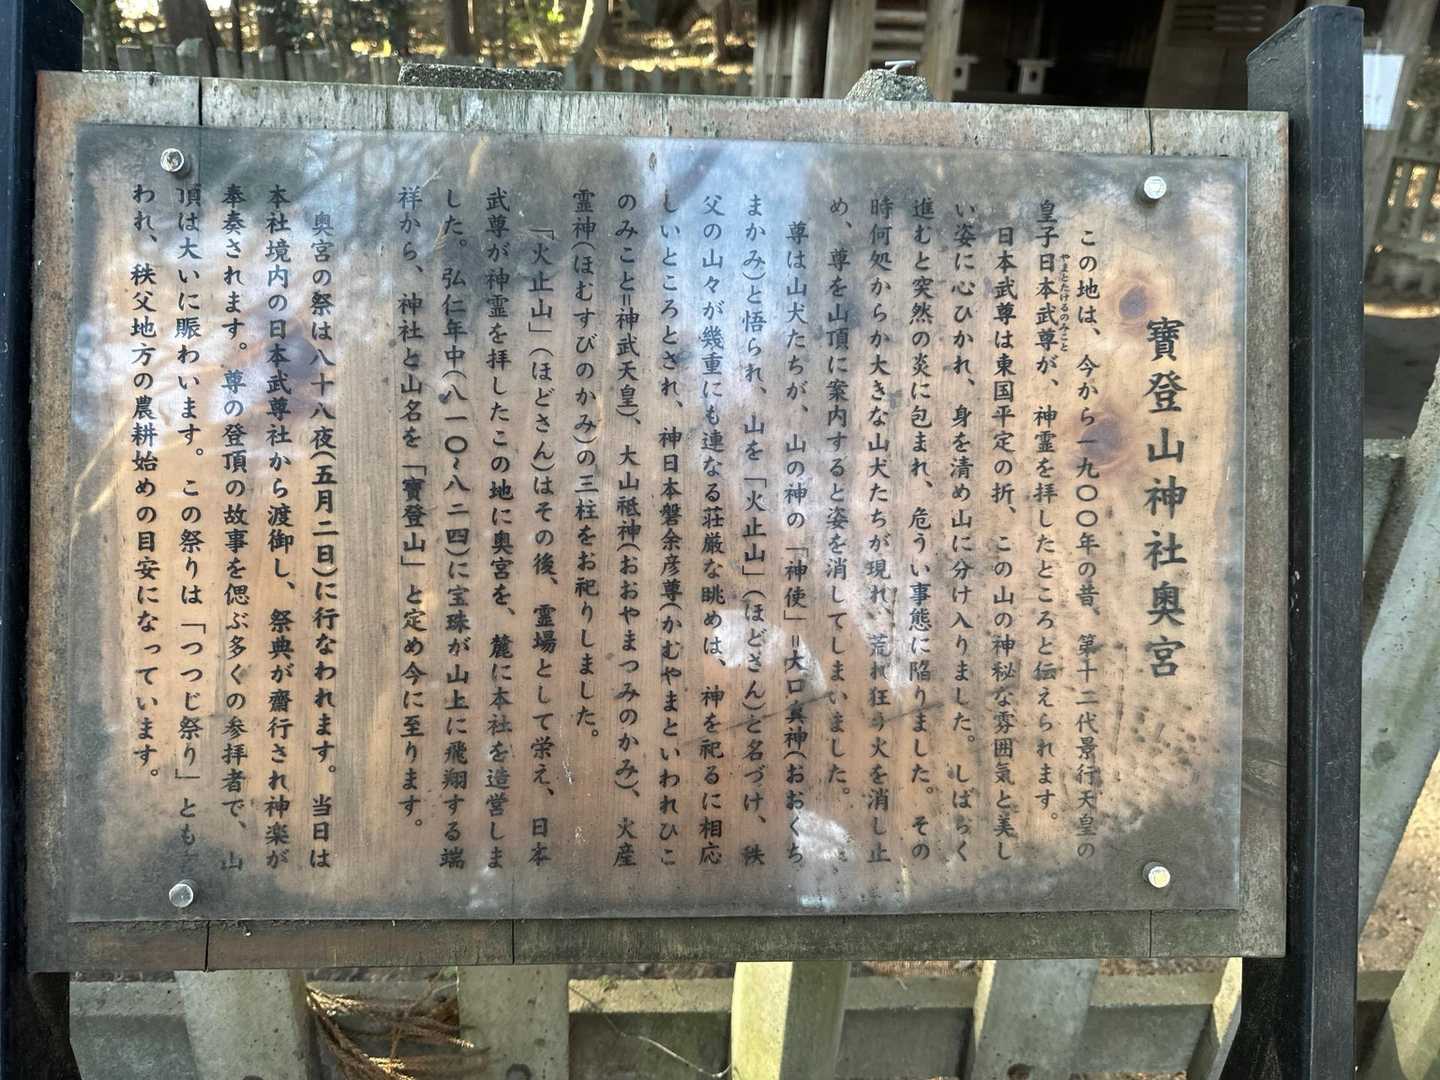 寶登山神社奥宮
この地は、今から一九〇〇年の昔、第十二代景行天皇の
皇子日本武尊が、神霊を拝したところと伝えられます。
やまとたけるのみこと
日本武尊は東国平定の折、この山の神秘な雰囲気と美し
い姿に心ひかれ、身を清め山に分け入りました。しばらく
進むと突然の炎に包まれ、危うい事態に陥りました。その
時何処からか大きな山犬たちが現れ、荒れ狂う火を消し止
め、尊を山頂に案内すると姿を消してしまいました。
尊は山犬たちが、山の神の「神使」=大口真神(おおくち
まかみ)と悟られ、山を「火止山」(ほどさん)と名づけ、秩
父の山々が幾重にも連なる荘厳な眺めは、神を祀るに相応
しいところとされ、神日本磐余彦尊(かむやまといわれひこ
のみこと=神武天皇)、大山祗神(おおやまつみのかみ)、火産
霊神(ほむすびのかみ)の三柱をお祀りしました。
「火止山」(ほどさん)はその後、霊場として栄え、日本
武尊が神霊を拝したこの地に奥宮を、麓に本社を造営しま
した。弘仁年中(八一〇~八二四)に宝珠が山上に飛翔する端
祥から、神社と山名を「寶登山」と定め今に至ります。
奥宮の祭は八十八夜(五月二日)に行なわれます。当日は
本社境内の日本武尊社から渡御し、祭典が齋行され神楽が
奉奏されます。尊の登頂の故事を偲ぶ多くの参拝者で、山
頂は大いに賑わいます。この祭りは「つつじ祭り」とも
われ、秩父地方の農耕始めの目安になっています。